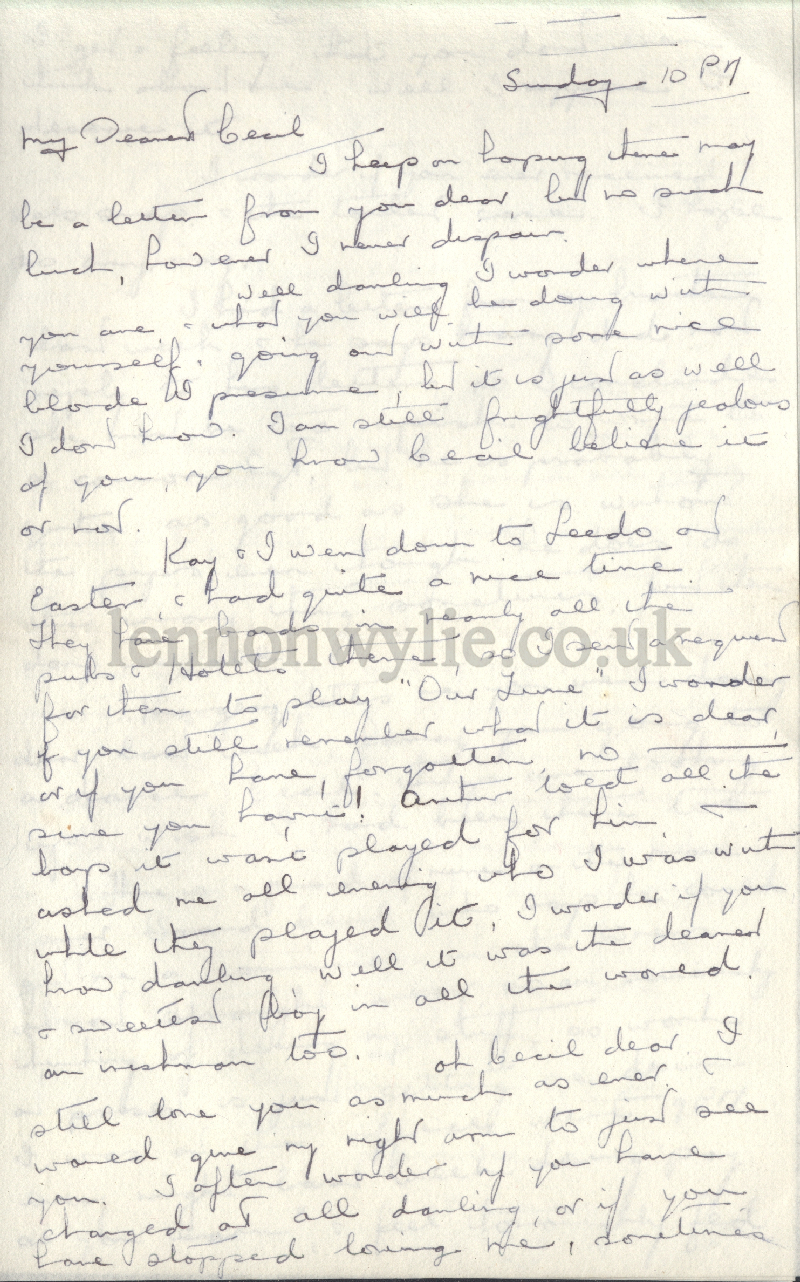 Sunday 10 PM
My Dearest Cecil
I keep on hoping there may
be a letter from you dear, but no such
luck, however I never dispair.
Well darling I wonder where
you are, & what you will be doing with
yourself. going out with some nice
blonde I presume, but it is just as well
I dont know. I am still frightfully jealous
of you, you know Cecil believe it
or not.
Kay & I went down to Leeds at
Easter, & had quite a nice time.
They have bands in nearly all the
pubs & Hotels there, so I sent a request
for them to play "Our Tune" I wonder
if you still remember what it is dear,
or if you have forgotten, no
sure you havn't! Arthur told all the
boys it was played for him &
asked me all evening who I was with
while they played it, I wonder if you
know darling, well it was the dearest
& sweetest boy in all the world.
an irishman too. oh Cecil dear I
still love you as much as ever. &
would give my right arm to just see
you. I often wonder if you have
changed at all darling, or if you
have stopped loving me, sometimes
lennonwylie.co.uk